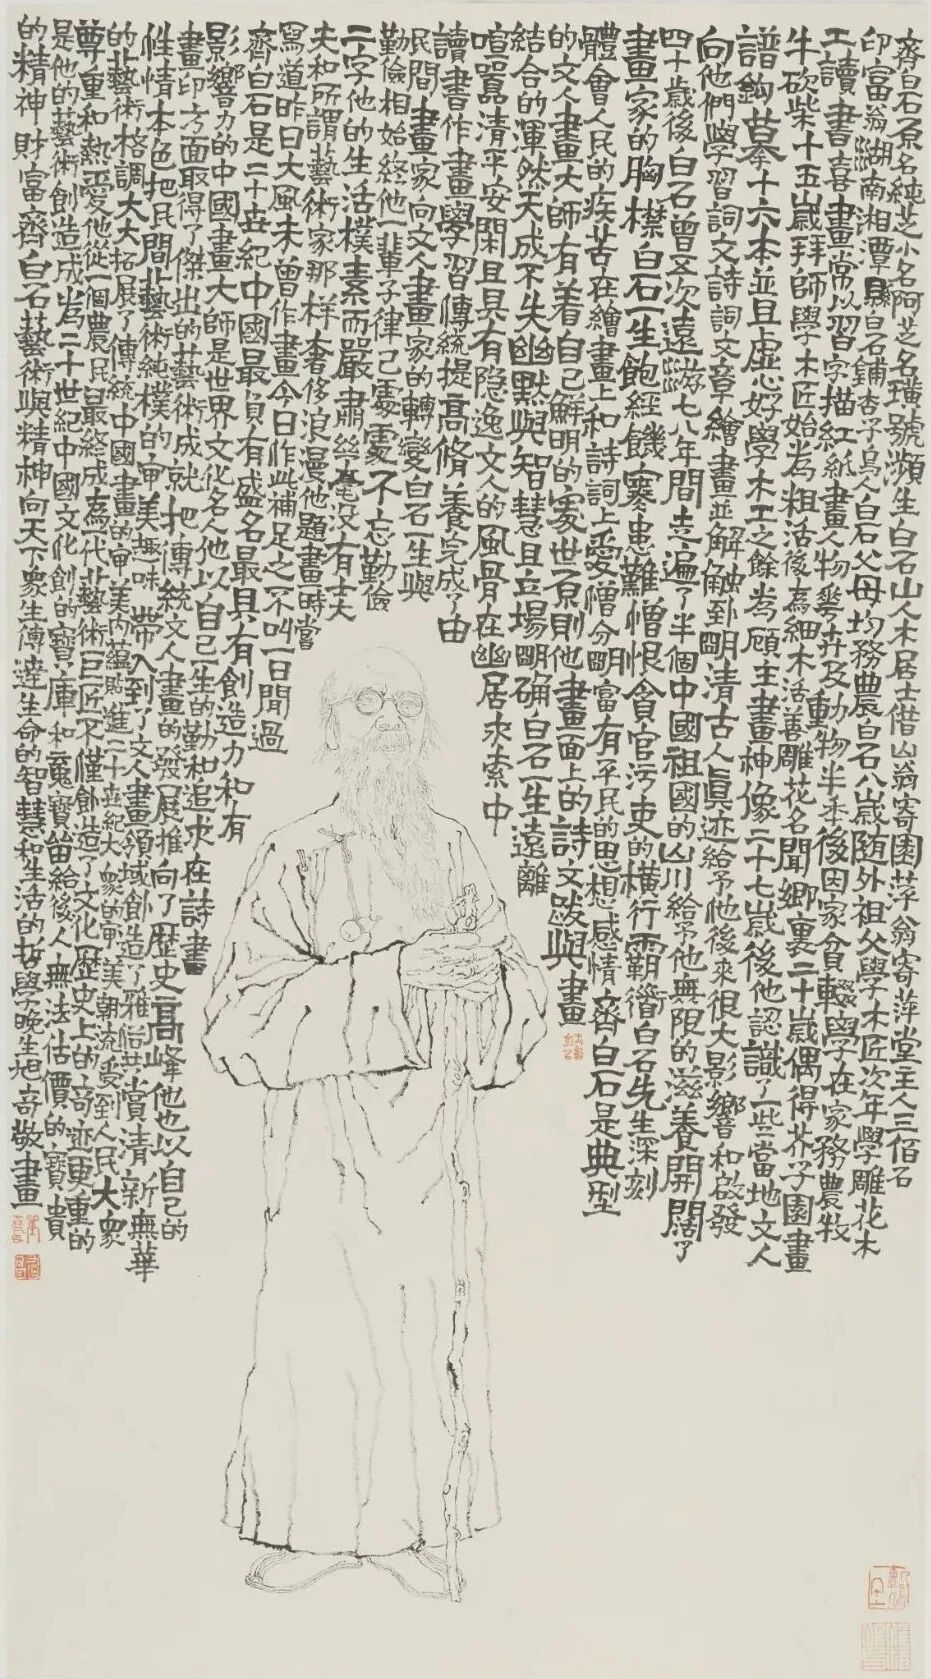 齊白石原名純芝小名阿芝名璜號瀕生白石山人木居士借山翁寄園萍翁寄萍堂主人三佰石
印富翁湖南湘潭縣白石鋪杏子烏人白石父母均務農白石八歲随外祖父學木匠次年學雕花木
工讀書喜畫常以習字描紅紙畫人物花卉及動物半年後因家貧輟學在家務農牧
牛砍柴十五歲拜師學木匠始為粗活後為細木活善雕花名聞鄉裏二十歲偶得芥子園畫
譜鈎摹十六本並且虚心好學木工之餘為顧主畫神像二十七歲後他認識了一些當地文人
向他們學習詞文詩詞文章繪畫並解觸到明清古人真迹給予他後來很大影響和啟發
四十歲後白石曾五次遠游七八年間走遍了半個中國祖國的山川給予他無限的滋養開闊了
畫家的胸襟白石一生飽經饑寒患難憎恨貪官污吏的橫行霸衟白石先生深刻
體會人民的疾苦在繪畫上和詩詞上愛憎分明富有平民的思想感情齊白石是典型
的文人畫大師有着自己鮮明的處世原則他畫面上的詩文跋與畫
結合的渾然天成不失幽默與智慧且立場明确白石一生遠離
喧囂清平安閑且具有隐逸文人的風骨在幽居求索中
讀書作畫學習傳統提高脩養完成了由
民間畫家向文人畫家的轉變白石一生與
勤儉相始終他一輩子律己處處不忘勤儉
二字他的生活樸素而嚴肅絲毫没有士大
夫和所謂藝術家那样奢侈浪漫他題畫時嘗
寫道昨日大風未曾作畫今日作此補足之不叫一日閒過
齊白石是二十世紀中國最負有盛名最具有創造力和有
影響力的中國畫大師是世界文化名人他以自己一生的勤和追求在詩書
畫印方面取得了傑出的藝術成就把傳統文人畫的發展推向了歷史高峰他也以自己的
性情本色把民間藝術純樸的审美趣味帶入到了文人畫領域創造了雅俗共賞清新無華
的藝術格調大大拓展了傳統中國畫的审美内蕴貼進二十世紀大衆的审美朝流受到人民大衆
尊重和熱愛他從一個農民最終成為一代藝術巨匠不僅創造了文化歷史上的奇迹更重的
是他的藝術創造成為二十世紀中國文化創的寶庫和蒐寶笛給後人無法估價的寶貴
的精神財富齊白石藝術與精神向天下衆生傳達生命的智慧和生活的哲學晚生旭奇敬畫